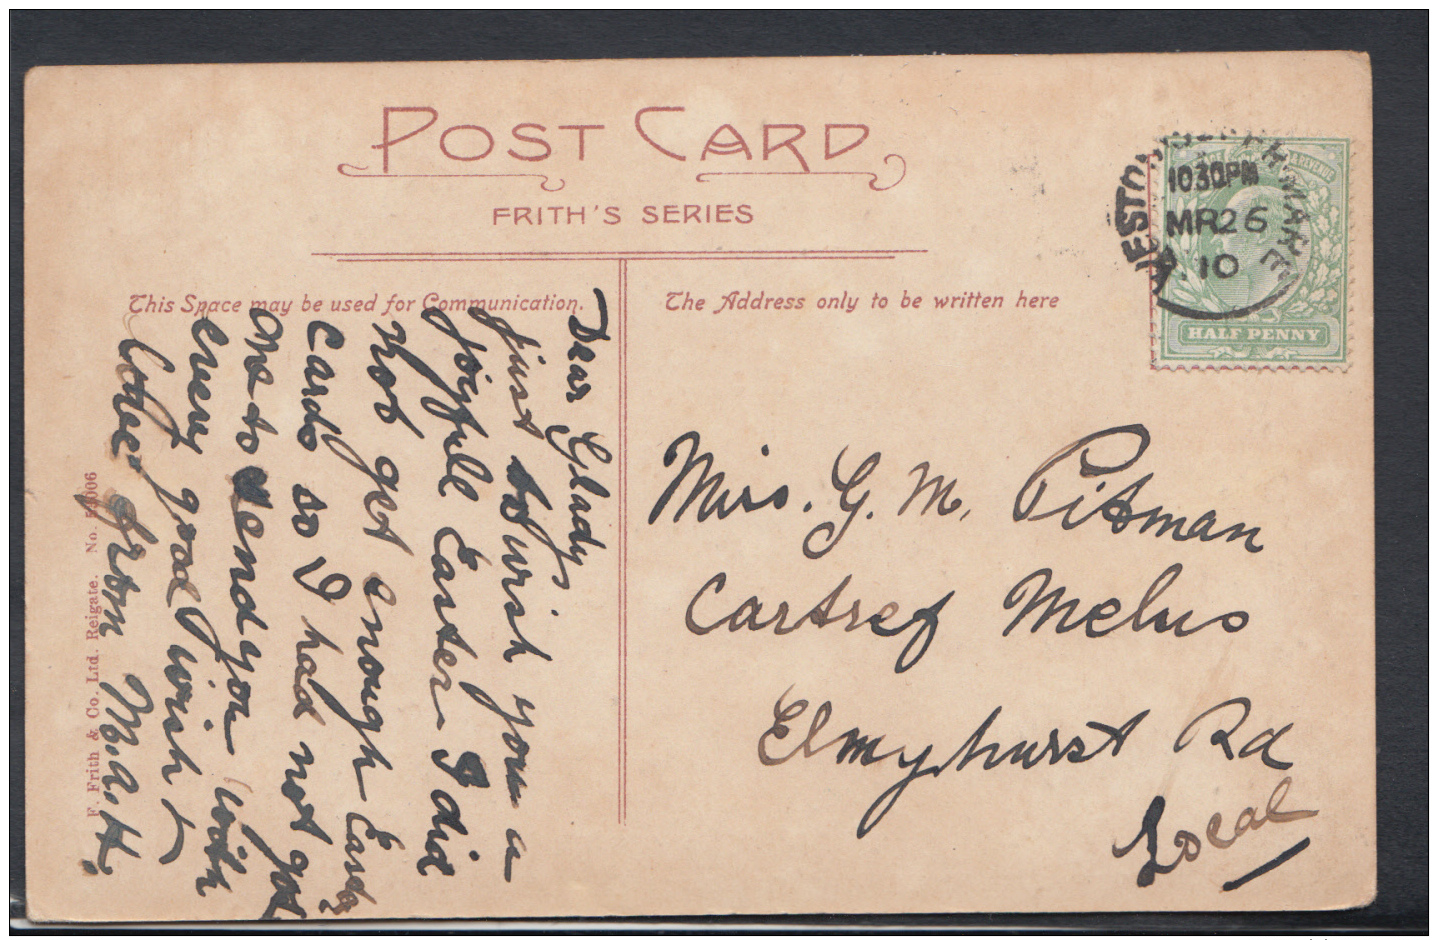 POST CARD
FRITH'S SERIES
This Space may be used for Communication.
The Address only to be written here
Dear Glady
just to wish you a
joyfull Easter I did
not get enough Easty
cards so I had not got
one to send you with
every good wish &
love from M.A.H.
F. Frith & Co. Ltd. Reigate. No.
10 30PM
MR 26
10
& REVENUE
HALF PENNY
Miss. G. M. Pitman
Cartref Melus
Elmyhurst Rd
Local